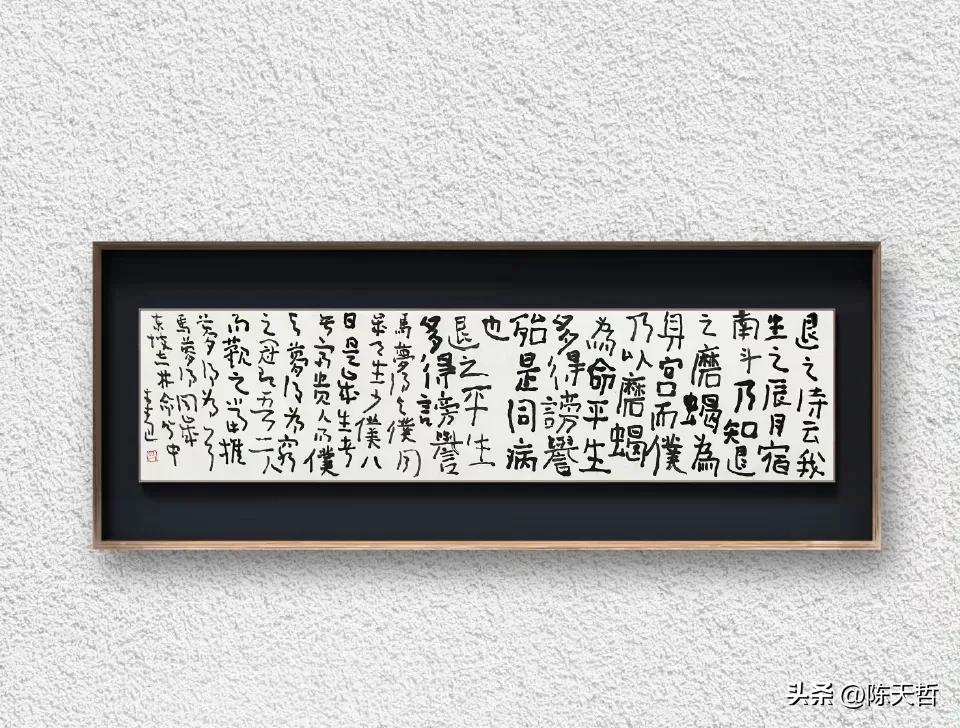 退之诗云我
生之辰月宿
南斗乃知退
之磨蝎為
身宮而僕
乃以磨蝎
為命平生
多得謗譽
殆是同病
也
退之平生
多得謗譽
馬夢得与僕同
歲月生少僕八
日是歲生者
无富贵人而僕
与夢得為窮
之冠即吾二人
而觀之当推
夢得為首
馬夢得同歲
東坡志林命分中
头条 @陈天哲